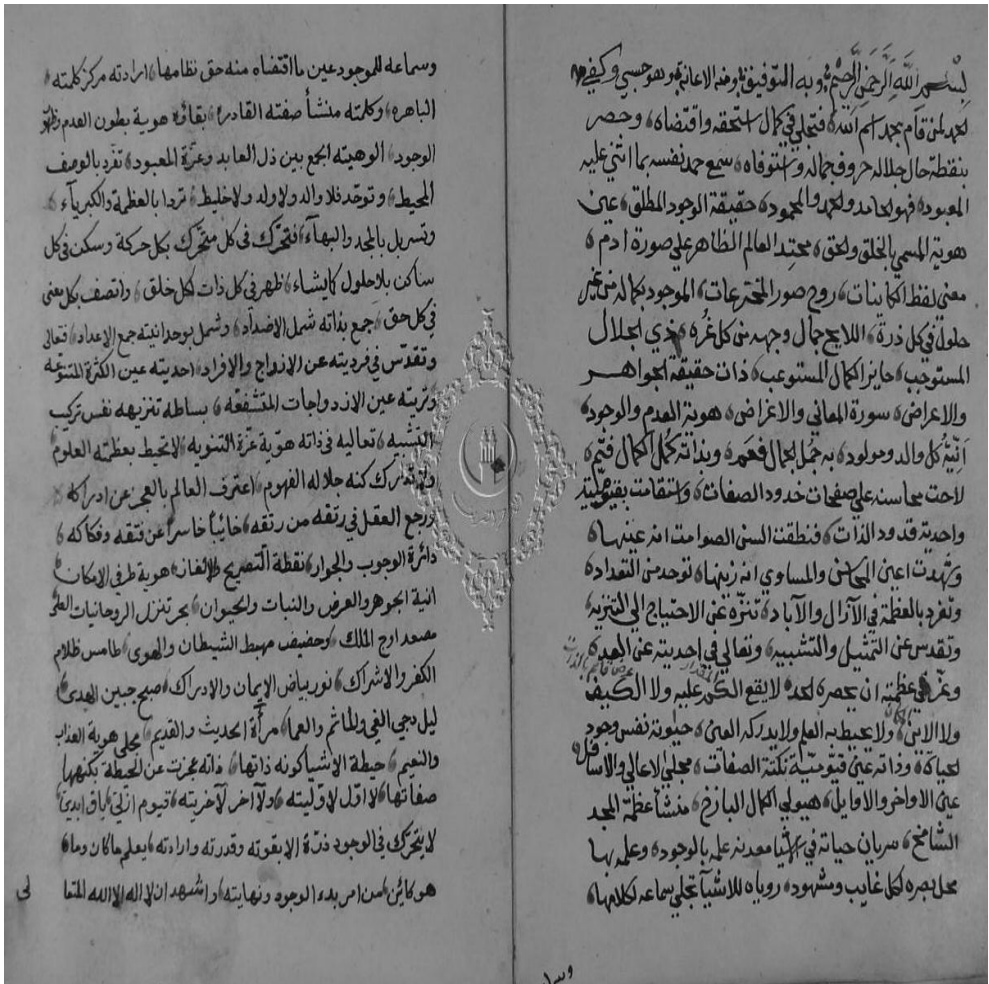 بسم الله الرحمن الرحيم وبه التوفيق ومنه الاعانة وهو حسبي وكفى
الحمد لمن قام بحمد اسم الله فتجلى في كمال استحقه واقتضاه وحصر
بنقطة خال جلاله حروف جماله واستوفاه سمع حمد نفسه بما اثنى عليه
المعبود فهو الحامد والحمد والمحمود حقيقة الوجود المطلق عين
هوية المسمى بالخلق والحق محتد العالم الظاهر على صورة ادم
معنى لفظ الكاينات روح صور المخترعات الموجود بكماله من غير
حلول في كل ذرة اللايح جمال وجهه من كل غره ذي الجلال
المستوجب حايز الكمال المستوعب ذات حقيقة الجواهر
والاعراض سورة المعاني والاغراض هوية العدم والوجود
انية كل والد ومولود به جمل الجمال فعم وبذاته كمل الكمال فتم
لاحت محاسنه على صفحات خدود الصفات واستقامت بقيومية
واحدية قدود الذات فنطقت السن الصوامت انه عينها
وشهدت اعين المحاسن والمساوى انه زينها توحد من التعداد
وتفرد بالعظمة في الآزال والآباد تنزه عن الاحتياج الى التنزيه
وتقدس عن التمثيل والتشبيه وتعالى في احديته عن العدد
وعز في عظمته ان يحصره الحد لا يقع الكم عليه ولا الكيف
ولا الاين ولا يحيط به العلم ولا يدركه العين حيوته نفس وجود
الحياة وذاته عين قيوميته نكتة الصفات مجلى الاعالى والاسافل
عين الاواخر والاوايل هيولى الكمال الباذخ منشأ عظمة المجد
الشامخ سريان حياته في الاشيا معدنه علمه بالوجود وعلمه بها
محل بصره لكل غايب ومشهود روياه للاشيآ تجلى سماعه لكلامها
وسماعه للموجود عين ما اقتضاه منه حق نظامها ارادته مركز كلمته
الباهره وكلمته منشأ صفته القادره بقاؤه هوية بطون العدم وظهور
الوجود الوهيته الجمع بين ذل العابد وعزة المعبود تفرد بالوصف
المحيط وتوحد فلا والد ولا ولد ولا خليط تردا بالعظمة والكبرياء
وتسربل بالمجد والبهآء فتحرك في كل متحرك بكل حركة وسكن في كل
ساكن بلا حلول كما يشاء ظهر في كل ذات لكل خلق واتصف بكل معنى
في كل حق جمع بذاته شمل الاضداد وشمل بوحدانيته جمع الاعداد فتعالى
وتقدس في فرديته عن الازواج والافراد احديته عين الكثرة المتنوعه
وتريته عين الازدواجات المتشفعه بساطه تنزيهه نفس تركيب
التشبيه تعاليه في ذاته هوية عزة التنويه لا تحيط بعظمته العلوم
ولا تدرك كنه جلاله الفهوم اعترف العالم بالعجز عن ادراكه
ورجع العقل في رتقه من رتقه خائبا خاسرا عن فتقه وفكاكه
دائرة الوجوب والجواز نقطة التصريح والالغاز هوية طرفي الامكان
انية الجوهر والعرض والنبات والحيوان بحر تنزل الروحانيات العلى
مصعد اوج الملك وحضيض مهبط الشيطان والهوى طامس ظلام
الكفر والاشراك نور بياض الايمان والادراك صبح جبين الهدى
ليل دجى الغي والعمى مرآة الحديث والقديم مجلى هوية العذاب
والنعيم حيطة الاشيا كونه ذاتها ذاته عجزت عن الحيطة بكنهها
صفاتها لا اول لاوليته ولا آخر لآخريته قيوم ازلي باق ابدي
لا يتحرك في الوجود ذرة الا بقوته وقدرته وارادته يعلم ما كان وما
هو كائن من امر بدء الوجود ونهايته واشهد ان لا اله الا الله المتعا
لى